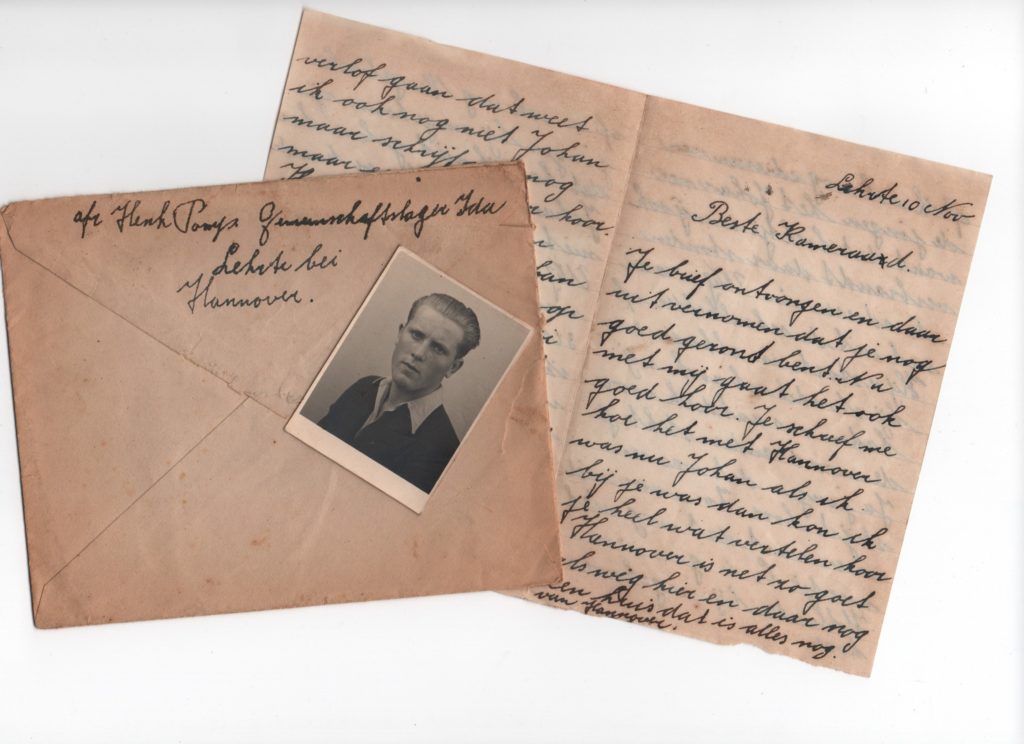 afz Henk Pomp Gemeinschaftslager Ida
Lehrte bei
Hannover.
verlof gaan dat weet
ik ook nog niet Johan
maar schrijf nog
maar
hoor.
Lehrte 10 Nov
Beste Kameraad.
Je brief ontvongen en daar
uit vernomen dat je nog
goed geront bent. Nu
met mij gaat het ook
goed hoor. Je schreef me
hoe het met Hannover
was nu Johan als ik
bij je was dan kon ik
je heel wat vertelen hoor
Hannover is net zo goet
als weg hier en daar nog
een huis dat is alles nog.
van Hannover.